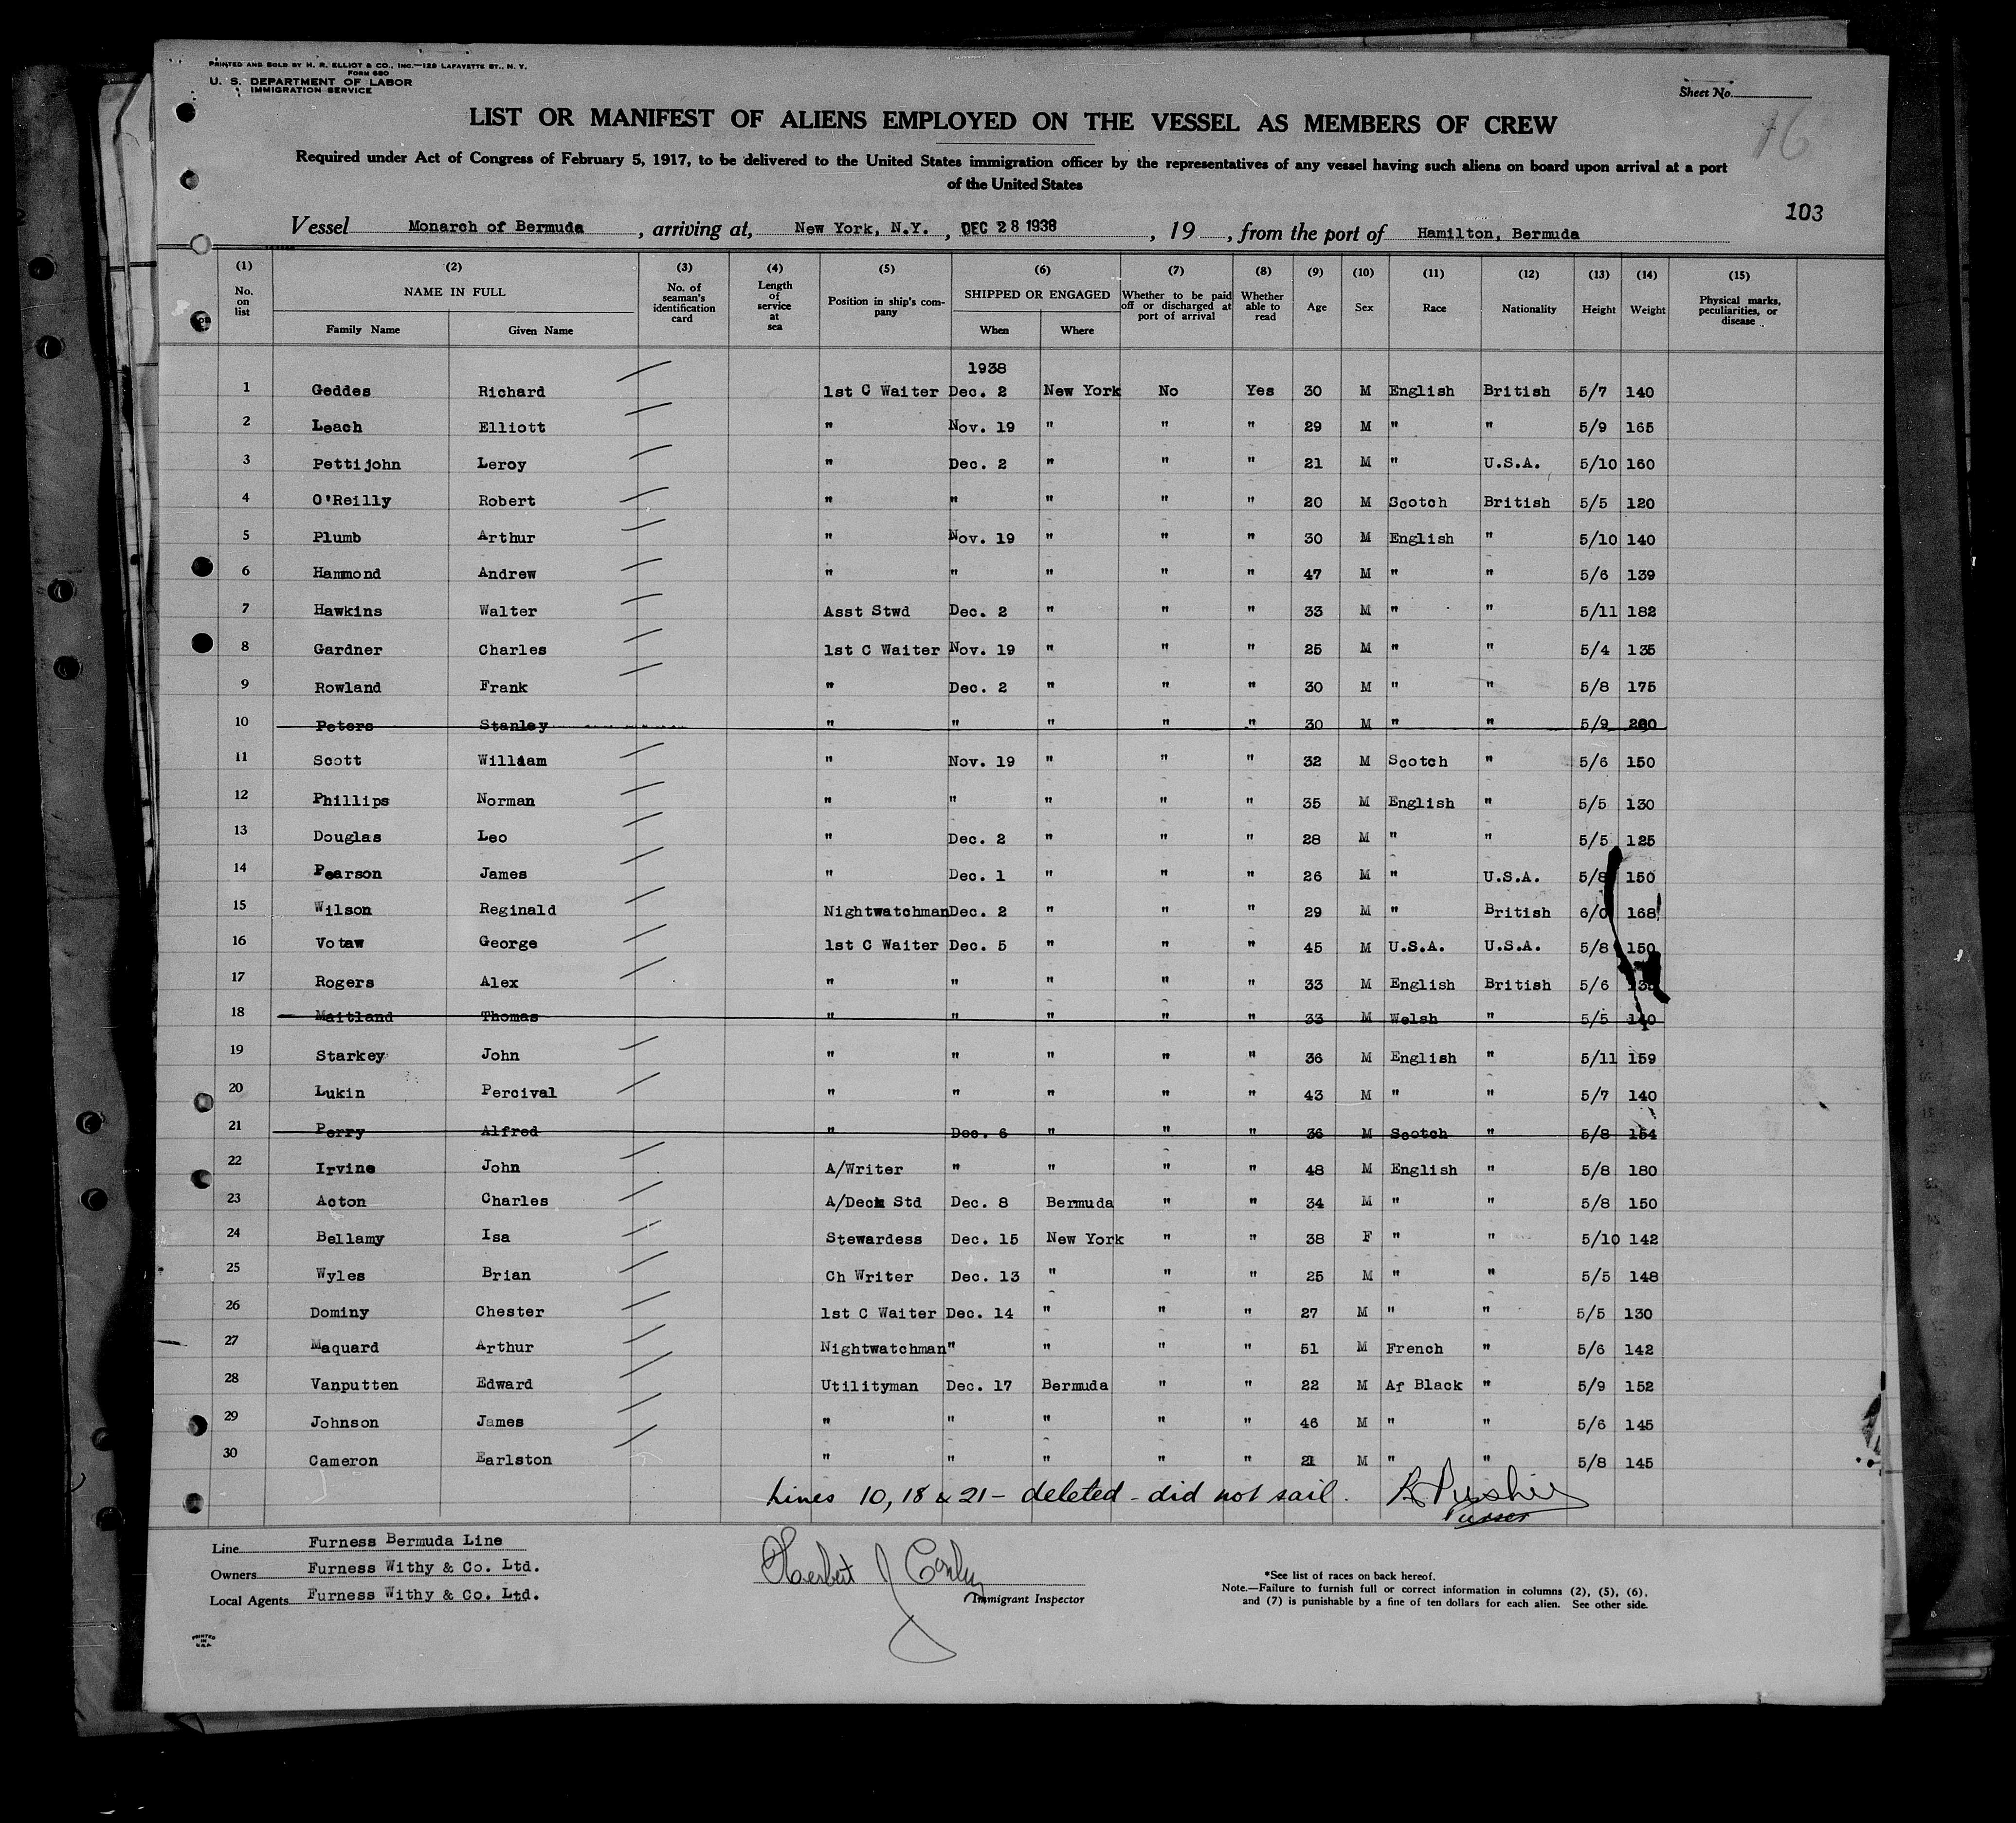 PRINTED AND SOLD BY H. R. ELLIOT & CO., INC.—129 LAFAYETTE ST., N. Y.
FORM 680
U. S. DEPARTMENT OF LABOR
IMMIGRATION SERVICE
Sheet No.
16
LIST OR MANIFEST OF ALIENS EMPLOYED ON THE VESSEL AS MEMBERS OF CREW
Required under Act of Congress of February 5, 1917, to be delivered to the United States immigration officer by the representatives of any vessel having such aliens on board upon arrival at a port
of the United States
103
Vessel Monarch of Bermuda, arriving at, New York, N.Y., DEC 28 1938, 19, from the port of Hamilton, Bermuda
(1) (2) (3) (4) (5) (6) (7) (8) (9) (10) (11) (12) (13) (14) (15)
No. on list NAME IN FULL Family Name Given Name No. of seaman's identification card Length of service at sea Position in ship's company SHIPPED OR ENGAGED When Where Whether to be paid off or discharged at port of arrival Whether able to read Age Sex Race Nationality Height Weight Physical marks, peculiarities, or disease
1938
1 Geddes Richard 1st C Waiter Dec. 2 New York No Yes 30 M English British 5/7 140
2 Leach Elliott " Nov. 19 " " " 29 M " " 5/9 165
3 Pettijohn Leroy " Dec. 2 " " " 21 M " U.S.A. 5/10 160
4 O'Reilly Robert " " " " " 20 M Scotch British 5/5 120
5 Plumb Arthur " Nov. 19 " " " 30 M English " 5/10 140
6 Hammond Andrew " " " " " 47 M " " 5/6 139
7 Hawkins Walter Asst Stwd Dec. 2 " " " 33 M " " 5/11 182
8 Gardner Charles 1st C Waiter Nov. 19 " " " 25 M " " 5/4 135
9 Rowland Frank " Dec. 2 " " " 30 M " " 5/8 175
10 Peters Stanley " " " " " 30 M " " 5/9 200
11 Scott William " Nov. 19 " " " 32 M Scotch " 5/6 150
12 Phillips Norman " " " " " 35 M English " 5/5 130
13 Douglas Leo " Dec. 2 " " " 28 M " " 5/5 125
14 Pearson James " Dec. 1 " " " 26 M " U.S.A. 5/8 150
15 Wilson Reginald Nightwatchman Dec. 2 " " " 29 M " British 6/0 168
16 Votaw George 1st C Waiter Dec. 5 " " " 45 M U.S.A. U.S.A. 5/8 150
17 Rogers Alex " " " " " 33 M English British 5/6
18 Maitland Thomas " " " " " 33 M Welsh " 5/5 140
19 Starkey John " " " " " 36 M English " 5/11 159
20 Lukin Percival " " " " " 43 M " " 5/7 140
21 Perry Alfred " Dec. 6 " " " 36 M Scotch " 5/8 154
22 Irvine John A/Writer " " " " 48 M English " 5/8 180
23 Acton Charles A/Deck Std Dec. 8 Bermuda " " 34 M " " 5/8 150
24 Bellamy Isa Stewardess Dec. 15 New York " " 38 F " " 5/10 142
25 Wyles Brian Ch Writer Dec. 13 " " " 25 M " " 5/5 148
26 Dominy Chester 1st C Waiter Dec. 14 " " " 27 M " " 5/5 130
27 Maquard Arthur Nightwatchman " " " " 51 M French " 5/6 142
28 Vanputten Edward Utilityman Dec. 17 Bermuda " " 22 M Af Black " 5/9 152
29 Johnson James " " " " " 46 M " " 5/6 145
30 Cameron Earlston " " " " " 21 M " " 5/8 145
Lines 10, 18 & 21 - deleted - did not sail.
Purser
Line Furness Bermuda Line
Owners Furness Withy & Co. Ltd.
Local Agents Furness Withy & Co. Ltd.
Herbert J
Immigrant Inspector
*See list of races on back hereof.
Note.—Failure to furnish full or correct information in columns (2), (5), (6),
and (7) is punishable by a fine of ten dollars for each alien. See other side.
PRINTED
IN
U.S.A.